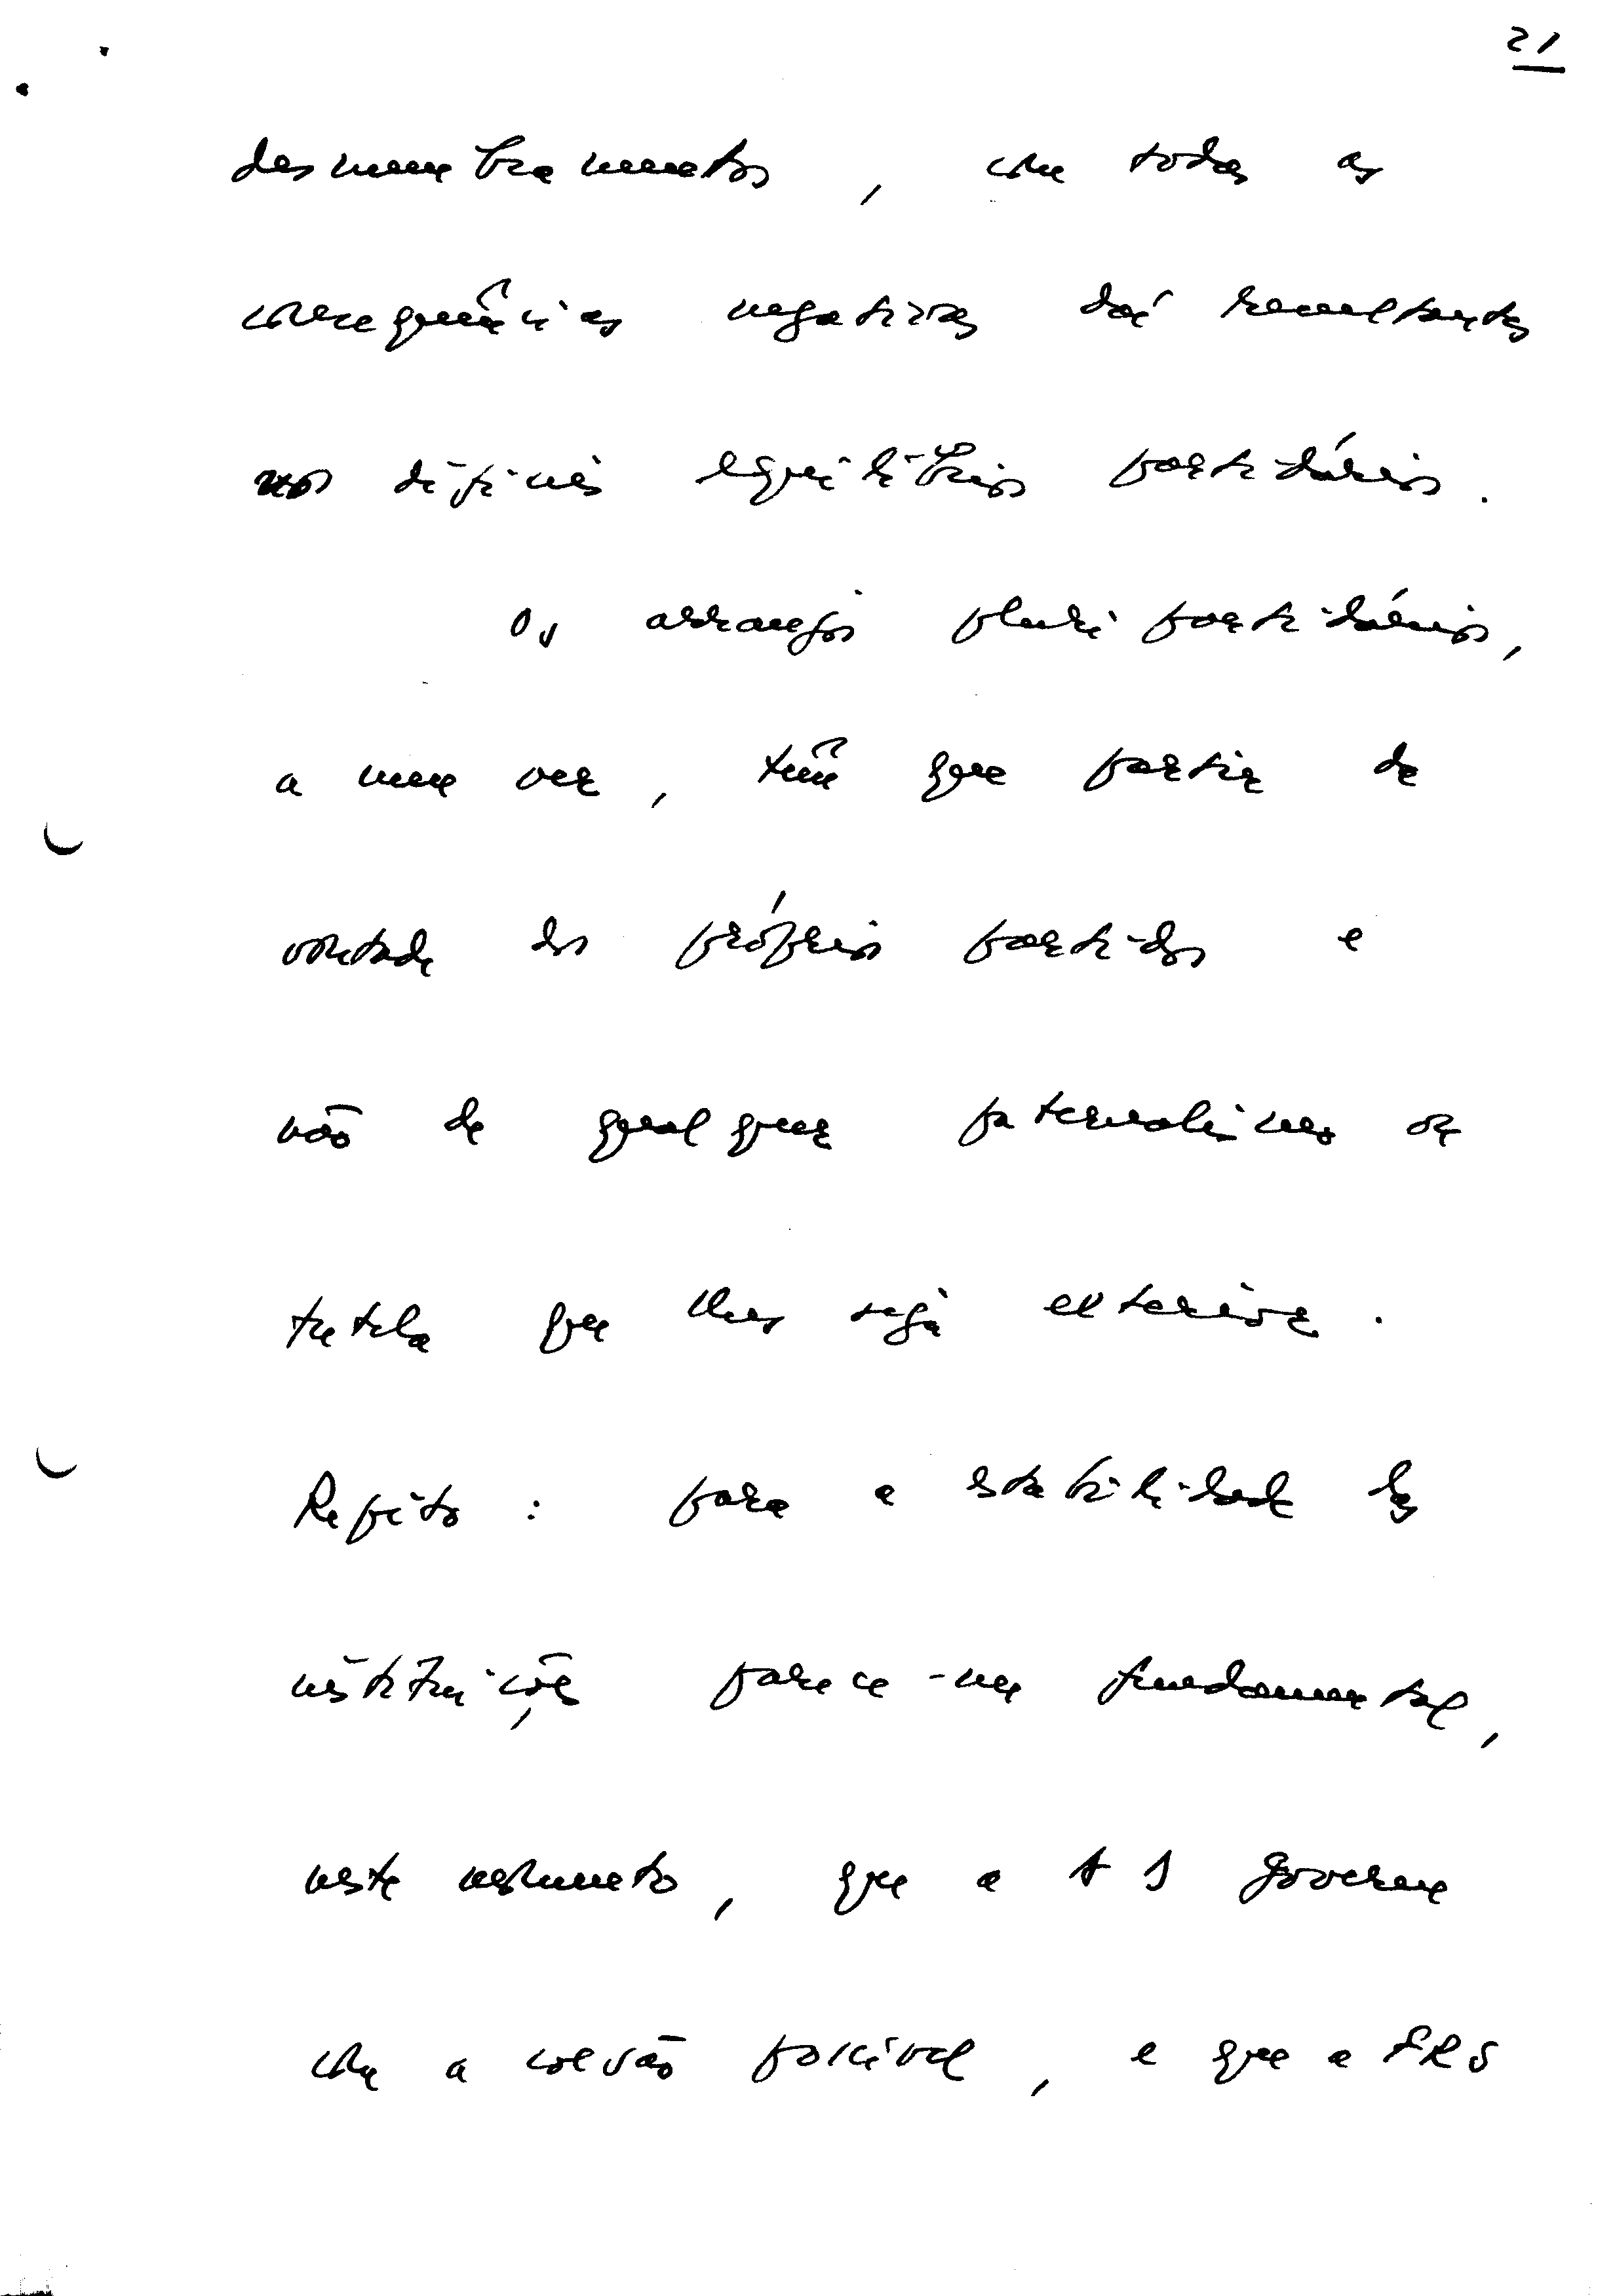 21
desmembramentos, com todas as
consequências negativas daí resultantes
nos difíceis equilíbrios partidários.
Os arranjos pluripartidários,
a meu ver, têm que partir da
vontade dos próprios partidos e
não de qualquer paternalismo ou
tutela que lhes seja exterior.
Repito: para a estabilidade das
instituições parece-me fundamental,
neste momento, que a AD governe
com a coesão possível, e que a FRS